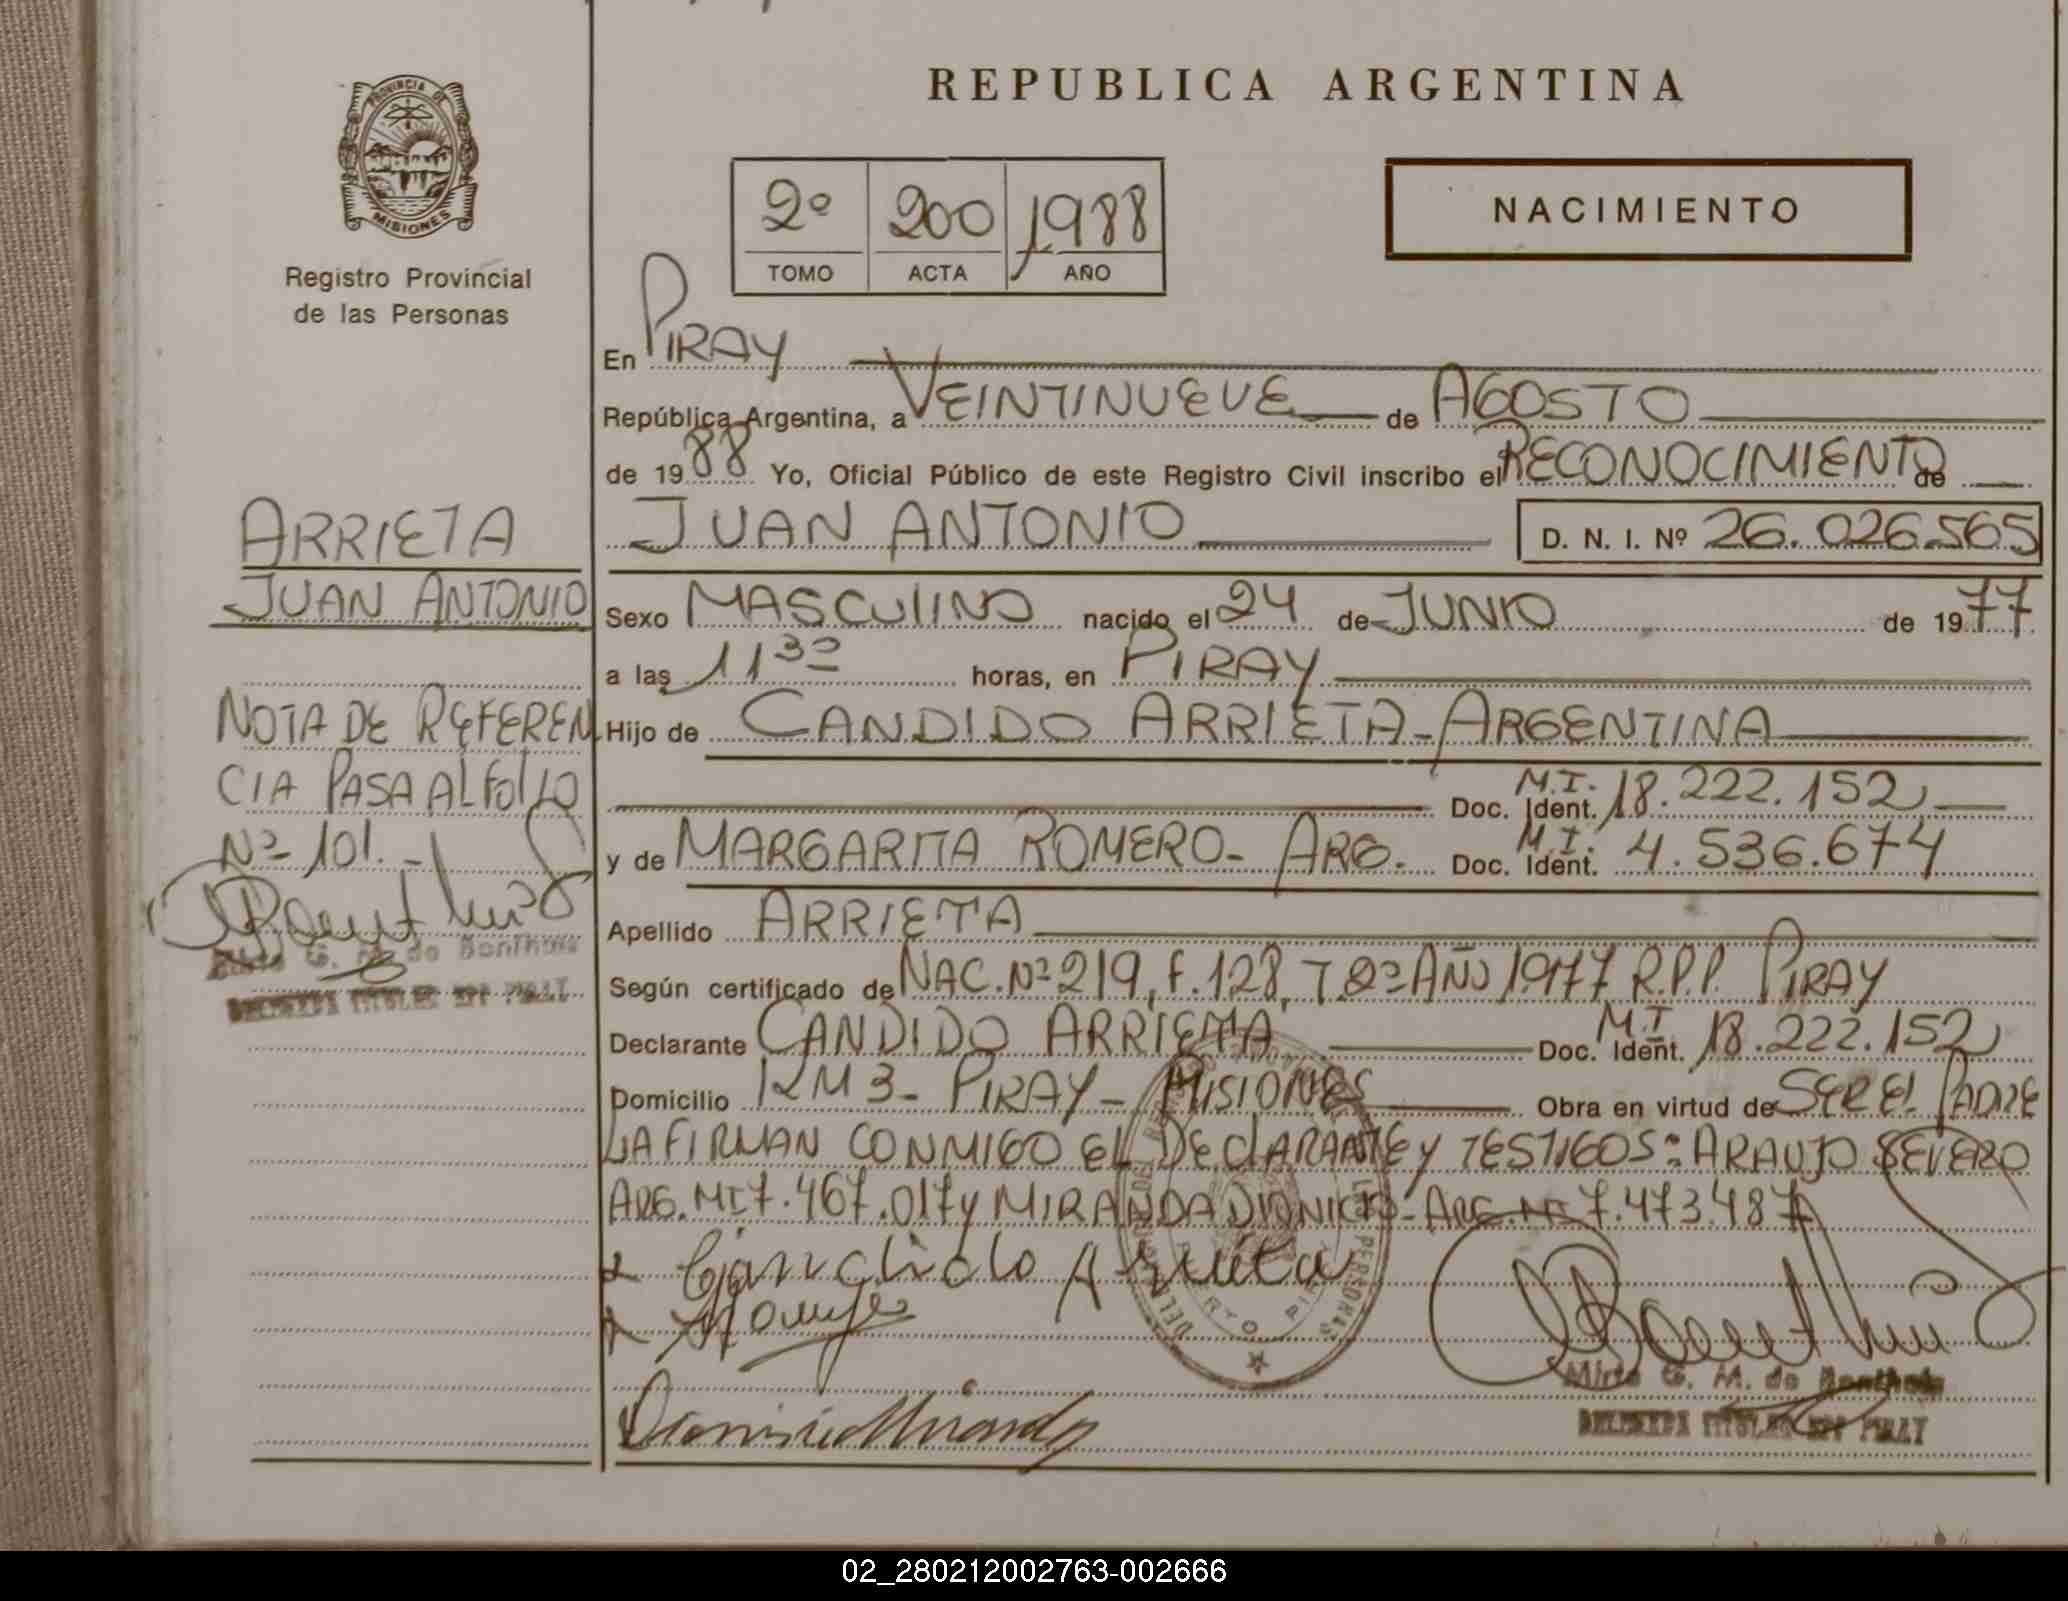 REPUBLICA ARGENTINA
PROVINCIA DE
MISIONES
Registro Provincial
de las Personas
2º 200 1988
TOMO ACTA AÑO
NACIMIENTO
En PIRAY
República Argentina, a VEINTINUEVE de AGOSTO
de 1988 Yo, Oficial Público de este Registro Civil inscribo el RECONOCIMIENTO de
JUAN ANTONIO D. N. I. Nº 26.026.565
Sexo MASCULINO nacido el 24 de JUNIO de 1977
a las 11 30 horas, en PIRAY
Hijo de CANDIDO ARRIETA - ARGENTINA
Doc. Ident. M.I. 18.222.152
y de MARGARITA ROMERO - ARG. Doc. Ident. M.I. 4.536.674
Apellido ARRIETA
Según certificado de NAC. Nº 219, F. 128, T. 2º AÑO 1977 R.P.P. PIRAY
Declarante CANDIDO ARRIETA Doc. Ident. M.I 18.222.152
Domicilio KM 3 - PIRAY - MISIONES Obra en virtud de SER EL PADRE
LA FIRMAN CONMIGO EL DECLARANTE Y TESTIGOS: ARAUJO SEVERO
ARG. MI 7.467.017 y MIRANDA DIONICIO - ARG. MI 7.473.487
Candido Arrieta
Dionisio Miranda
Mirta G. M. de
DELEGADA TITULAR PIRAY
ARRIETA
JUAN ANTONIO
NOTA DE REFEREN
CIA PASA AL FOLIO
Nº 101. -
Mirta G. M. de
DELEGADA TITULAR PIRAY
02_280212002763-002666